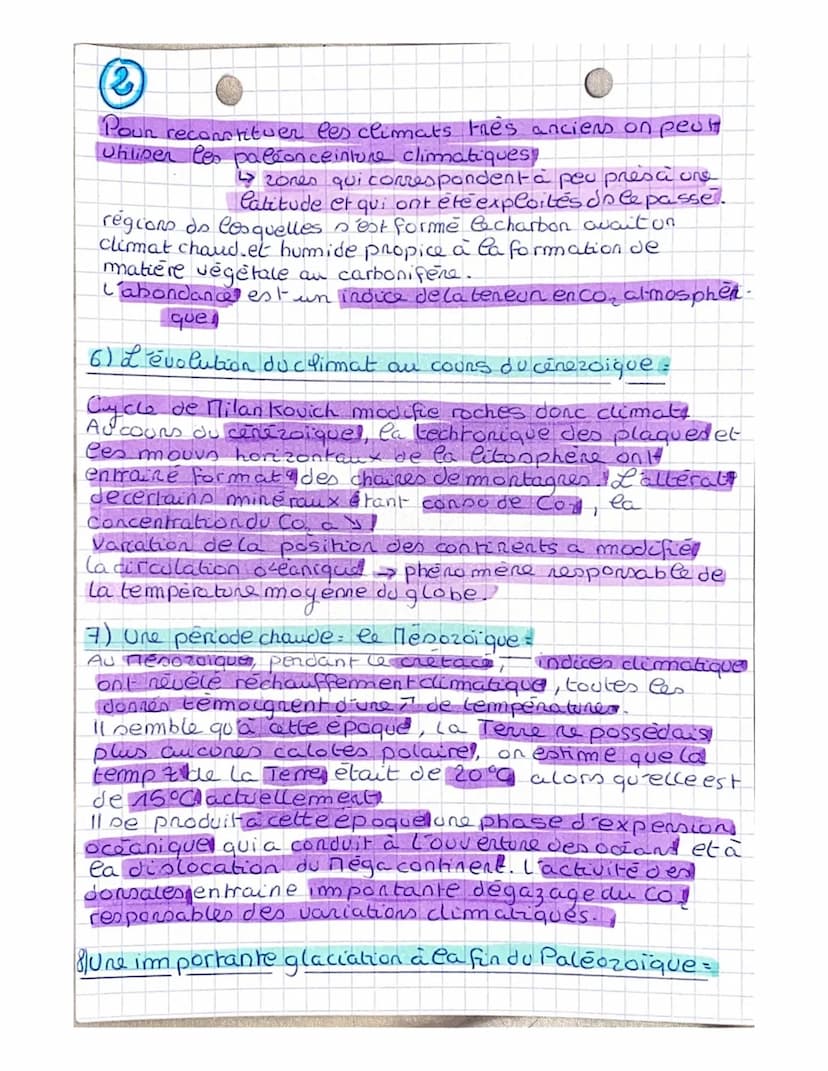 2
Pour reconstituer les climats très anciens on peut
utiliser les paléonceinture climatiques,
↳ zones qui correspondent à peu près à une
latitude et qui ont été exploités ds le passé.
régions ds lesquelles s'est formé le charbon avait un
climat chaud et humide propice à la formation de
matière végétale au carbonifère.
L'abondance est un indice de la teneur en CO₂ atmosphér-
que
6) L'évolution du climat au cours du cénozoïque =
Cycle de Milankovich modifie roches donc climat.
Au cours du cénozoïque, la techtronique des plaques et
les mouvs horizontaux de la litosphère ont
entrainé format° des chaines de montagnes. L'altérat°
de certains minéraux étant conso de CO₂, la
concentration du CO₂ a ↘
Variation de la position des continents a modifié
la circulation océanique → phénomène responsable de
la température moyenne du globe.
7) Une période chaude = le Mésozoïque =
Au Mésozoïque, pendant le crétacé, indices climatique
ont révélé réchauffement climatique, toutes les
donnés témoignent d'une ↗ de températures.
Il semble qu'à cette époque, la Terre ne possédais
plus aucunes calotes polaire, on estime que la
temp de la Terre était de 20°C alors qu'elle est
de 15°C actuellement
Il se produit à cette époque une phase d'expension
océanique qui a conduit à l'ouverture des océans et à
la dislocation du Mégacontinent. L'activité des
dorsales entraine importante dégazage du CO₂
responsables des variations climatiques.
8) Une importante glaciation à la fin du Paléozoïque =